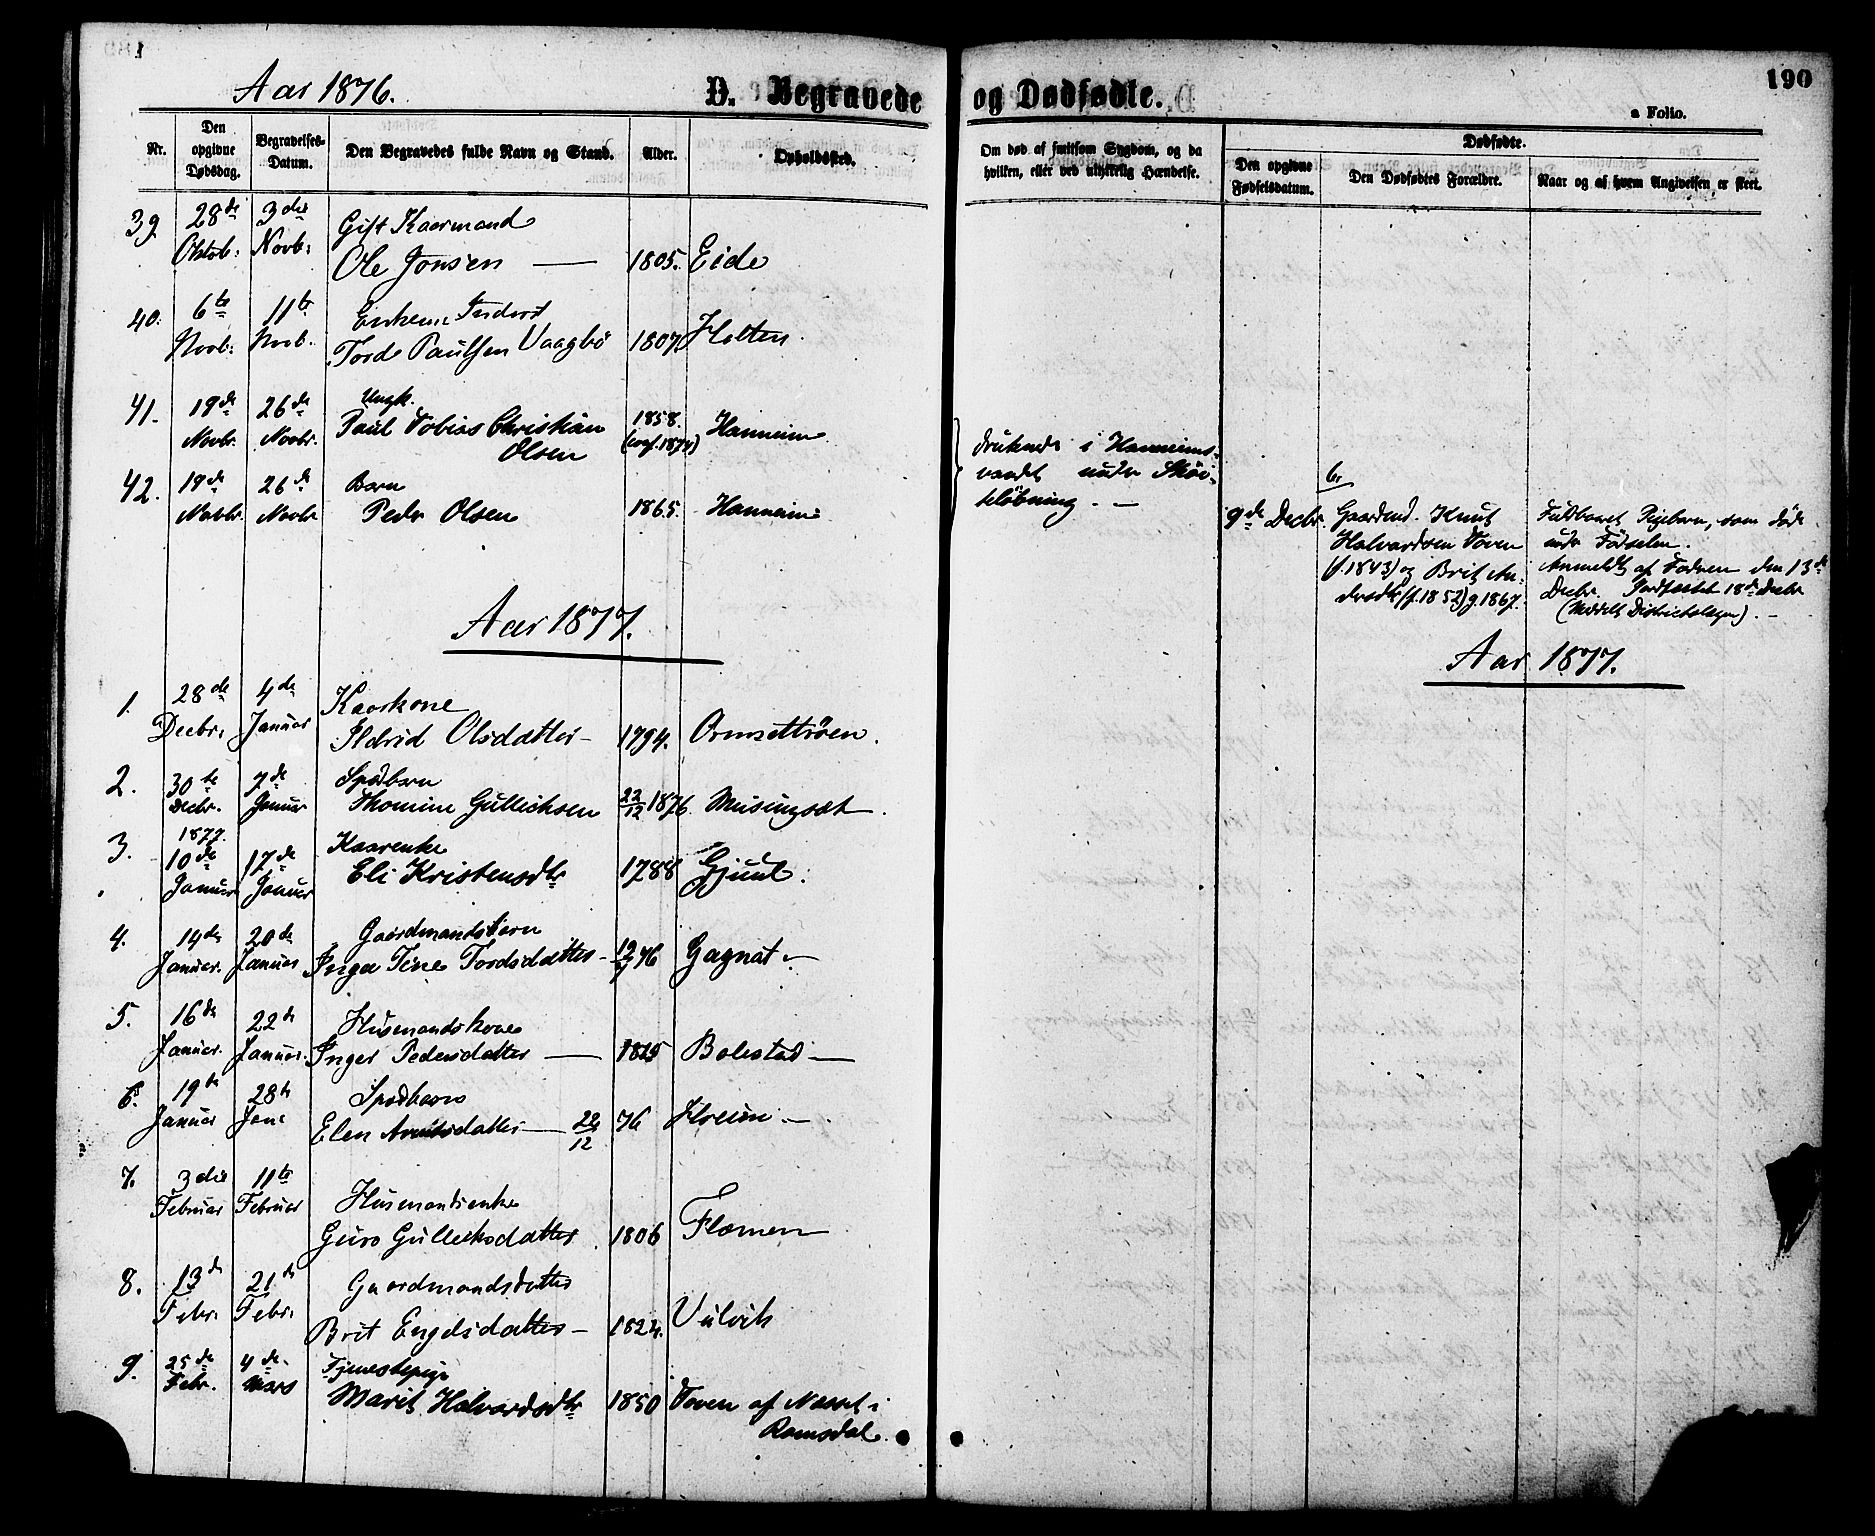 Aar 1876.
D. Begravede og Dødfødte.
190
a Folio.
Nr.
Den opgivne Dødsdag.
Begravelses-Datum.
Den Begravedes fulde Navn og Stand.
Alder.
Opholdssted.
Om død af smitsom Sygdom, og da
hvilken, eller ved ulykkelig Hændelse.
Dødfødte.
Den opgivne Fødselsdatum.
Den Dødfødtes Forældre.
Naar og af hvem Angivelsen er skeet.
39. 28de 3die Gift Kaarmand
Oktob: Novb: Ole Jonsen — 1805. Eide
40. 6te 11te Enkem. Inderst
Novb: Novb. Tord Paulsen Vaagbö 1807 Holten
41. 19de 26de Ungk.
Novbr. Novbr. Paul Tobias Christian 1858. Hanneim
Olsen (conf. 1874)
42. 19de 26de Barn
Novbr. Novbr Peder Olsen 1865. Hanneim
druknede i Hanneims-
vandet under Skøi-
teløbning. —
6.
9de Decbr. Gaardmd. Knut
Halvardsen Toven
(f. 1843) og Brit An-
dersdtr (f. 1852) g. 1867.
Fuldbaaret Pigebarn, som døde
under Fødselen.
Anmeldt af Faderen den 13de
Decbr. Jordfæstet 18de Decbr
(Meddelt Districtslægen). —
Aar 1877.
Aar 1877.
1. 28de 4de Kaarkone
Decbr. Januar Ildrid Olsdatter — 1794. Ormsettrøen.
2. 30te 7de Spædbarn
Decbr. Januar Thomine Gullichsen 22/12 1876 Meisingset.
3. 1877. 10de 17de Kaarenke
Januar Januar Eli Kristensdtr 1788 Gjuul.
4. 14de 20de Gaardmandsbarn
Januar. Januar Inga Tine Tordsdatter — 76 Gagnat —
5. 16de 22de Husmandskone
Januar. Januar. Inger Pedersdatter — 1825 Bolestad —
6. 19de 28de Spædbarn
Januar Jan: Elen datter — /12 76 —
7. 3die 11te Husmandsenke
Februar Februar Guro Gulleiksdatter 1806 Flemmen
8. 13de 21de Gaardmandsdatter
Febr. Febr. Brit Engelsdatter — 1824. Ulvik
9. 25de 4de Tjenestepige
Febr. Mars Marit Halvardsdtr 1850 Toven af Nesset i
Romsdal.